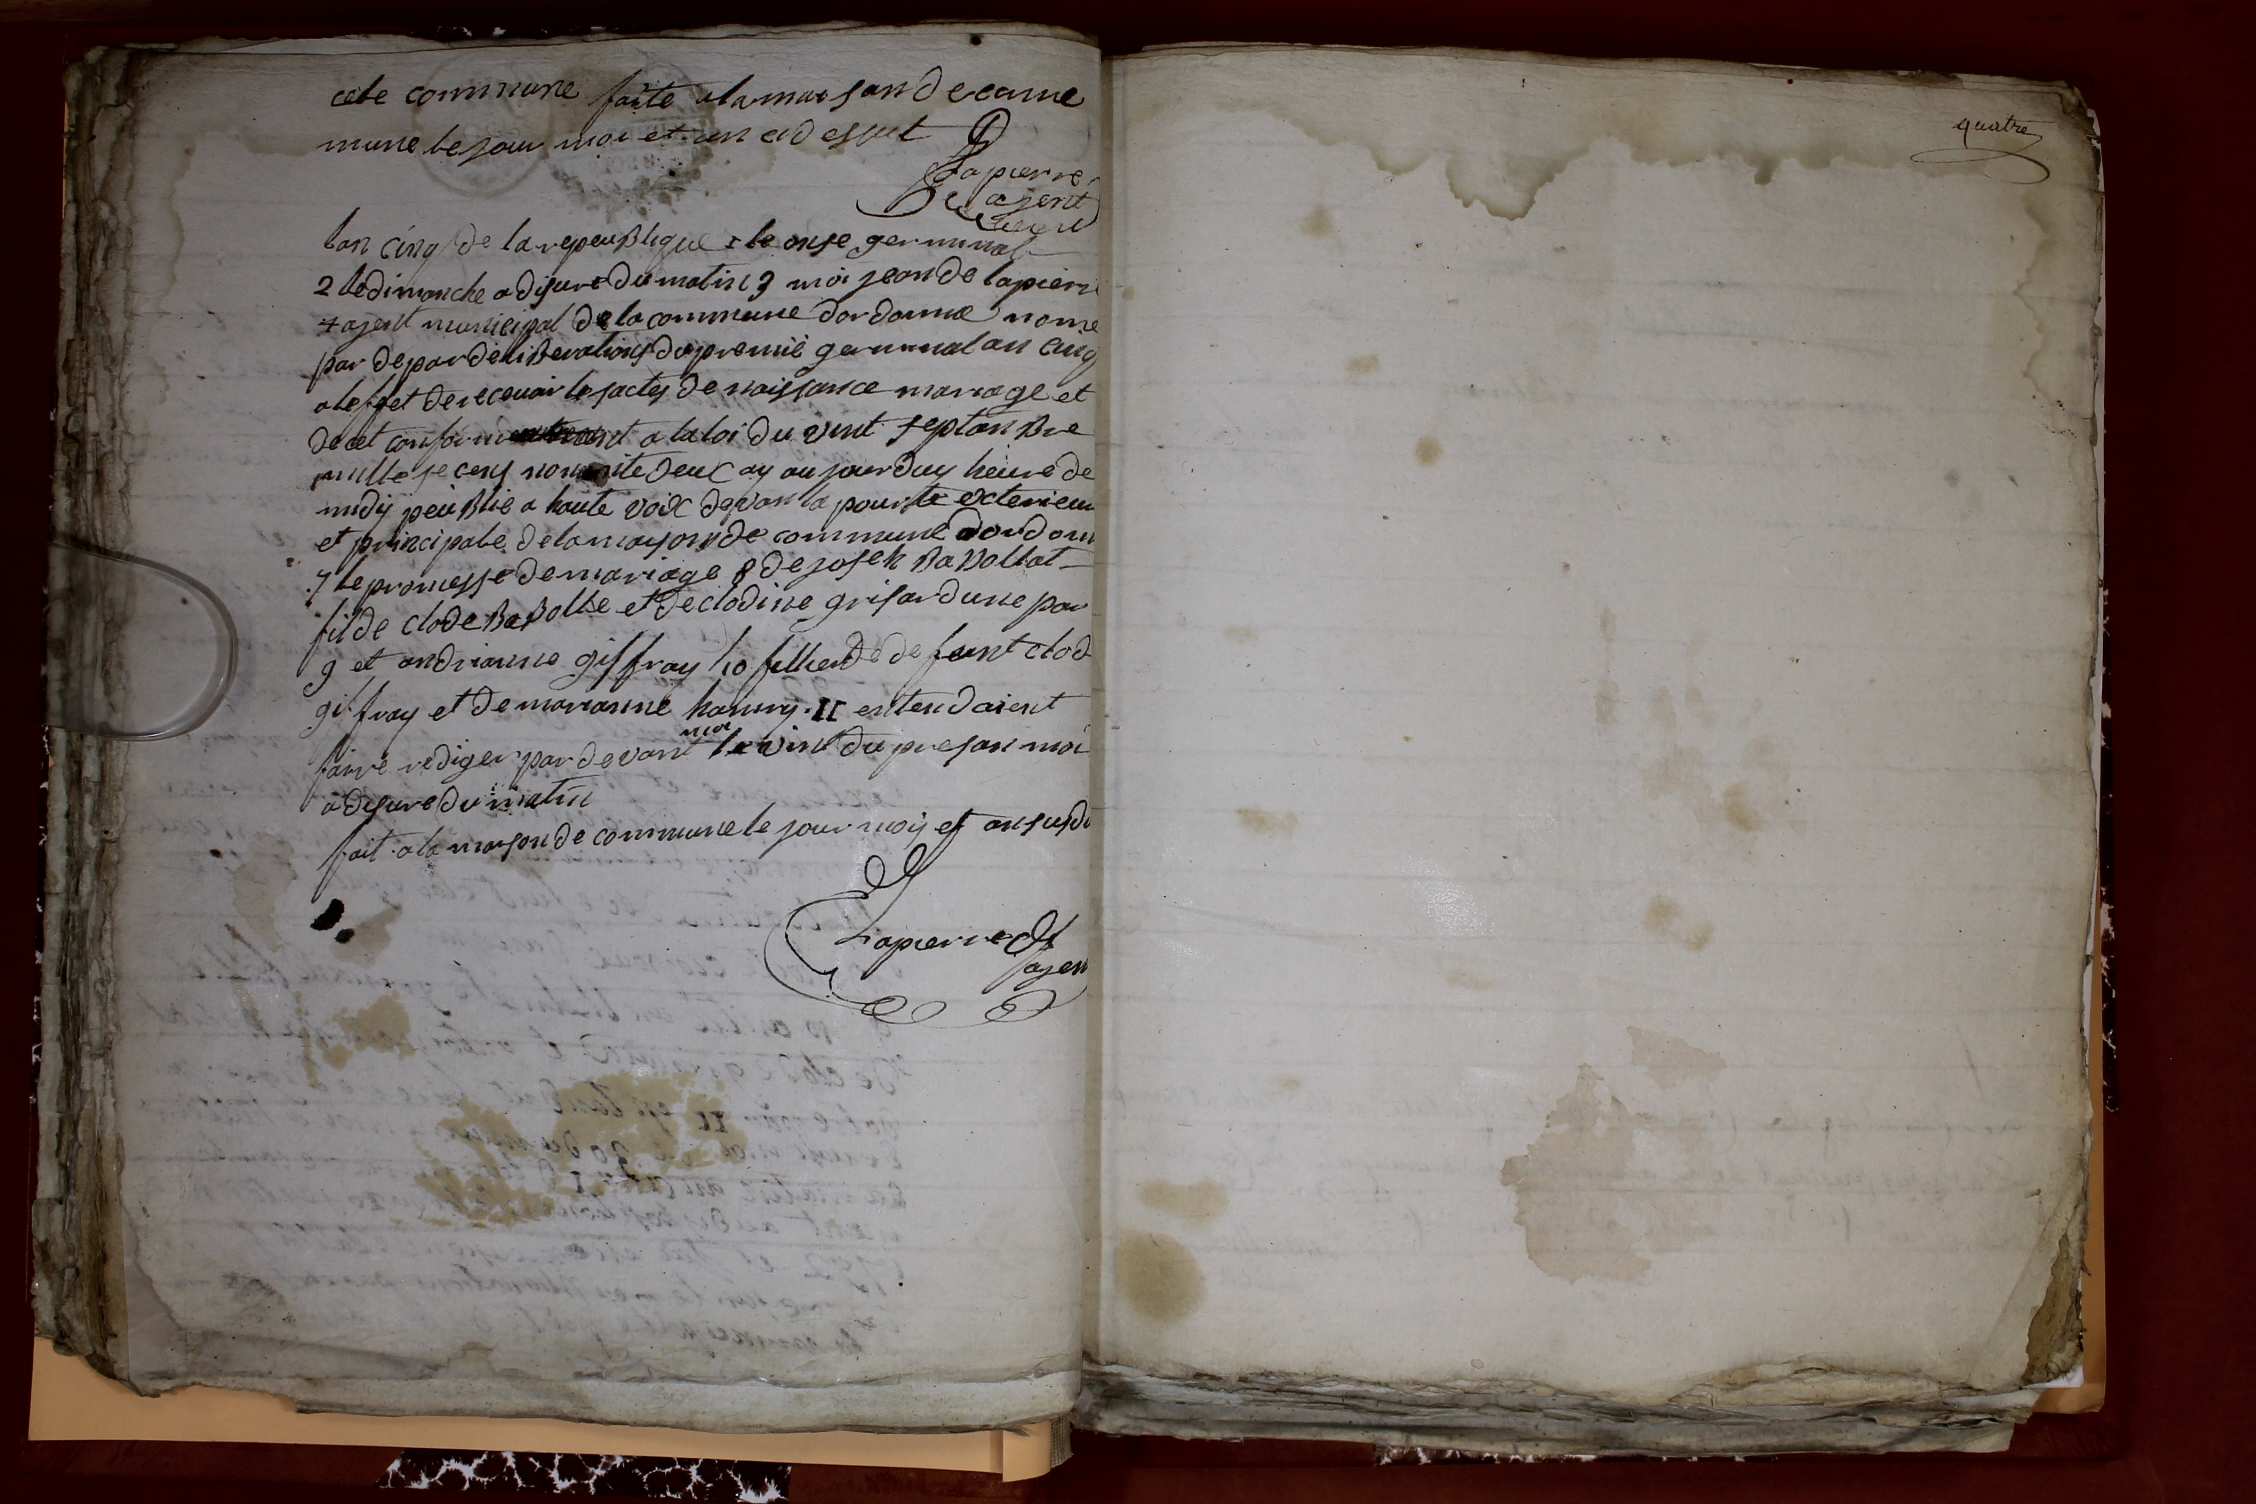 cete commune faite a la maison de came
mune le jour moi et an cid esjut
Lapierre
ajent
lan cinq de la repeublique 1 le onse germinal
2 le dimanche a disure du matin 3 moi jean de lapierre
4 ajent municipal de la commune dordonne nome
par de par deliberations du premie germinal an cinq
a lefet de recevoir les actes de naissance mariage et
decet conformement a la loi du vint septanbre
mille se cens nonente deux ay au jourduy heure de
midy peublie a haute voix devan la pourte exterieur
et principale de la mayson de commune dordonn
7 le promesse de mariage 8 de josek Babollat
fil de clode Babolle et de clodine grisard une par
9 et andrianne giffray 10 fillie de defeunt clod
giffray et de marianne hanry. 11 entendaient
faire rediger par devant moi le vint du presan moi
a disure du matin
fait a la mayson de commune le jour mois et an susdi
Lapierre
ajen
quatre